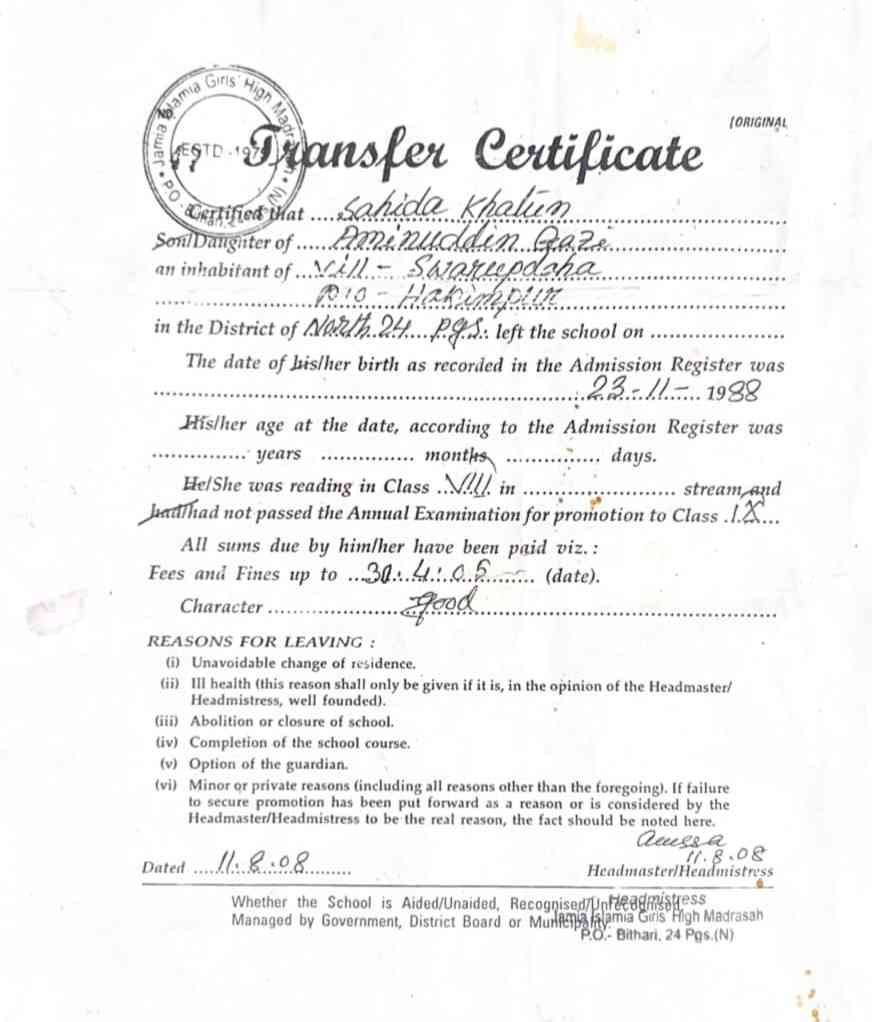 Jamia Islamia Girls' High Madrasah
ESTD
P.O.
(N)
(ORIGINAL
Transfer Certificate
Certified that .... Sahida Khatun
Son/Daughter of ..... Aminuddin Gazi
an inhabitant of .. Vill - Swareepdaha
P.O - Hakimpur
in the District of North 24 Pgs. left the school on ....................
The date of his/her birth as recorded in the Admission Register was
23 - 11 - 1988
His/her age at the date, according to the Admission Register was
............... years ............... months ............... days.
He/She was reading in Class ..VIII. in ........................ stream and
had/had not passed the Annual Examination for promotion to Class .IX...
All sums due by him/her have been paid viz. :
Fees and Fines up to ...30.4.05 ....... (date).
Character ........ good ........
REASONS FOR LEAVING :
(i) Unavoidable change of residence.
(ii) Ill health (this reason shall only be given if it is, in the opinion of the Headmaster/
Headmistress, well founded).
(iii) Abolition or closure of school.
(iv) Completion of the school course.
(v) Option of the guardian.
(vi) Minor or private reasons (including all reasons other than the foregoing). If failure
to secure promotion has been put forward as a reason or is considered by the
Headmaster/Headmistress to be the real reason, the fact should be noted here.
11.8.08
Dated ....11.8.08.........
Headmaster/Headmistress
Whether the School is Aided/Unaided, Recognised/Unrecognised,
Managed by Government, District Board or Municipality.
Headmistress
Jamia Islamia Girls High Madrasah
P.O.- Bithari, 24 Pgs.(N)